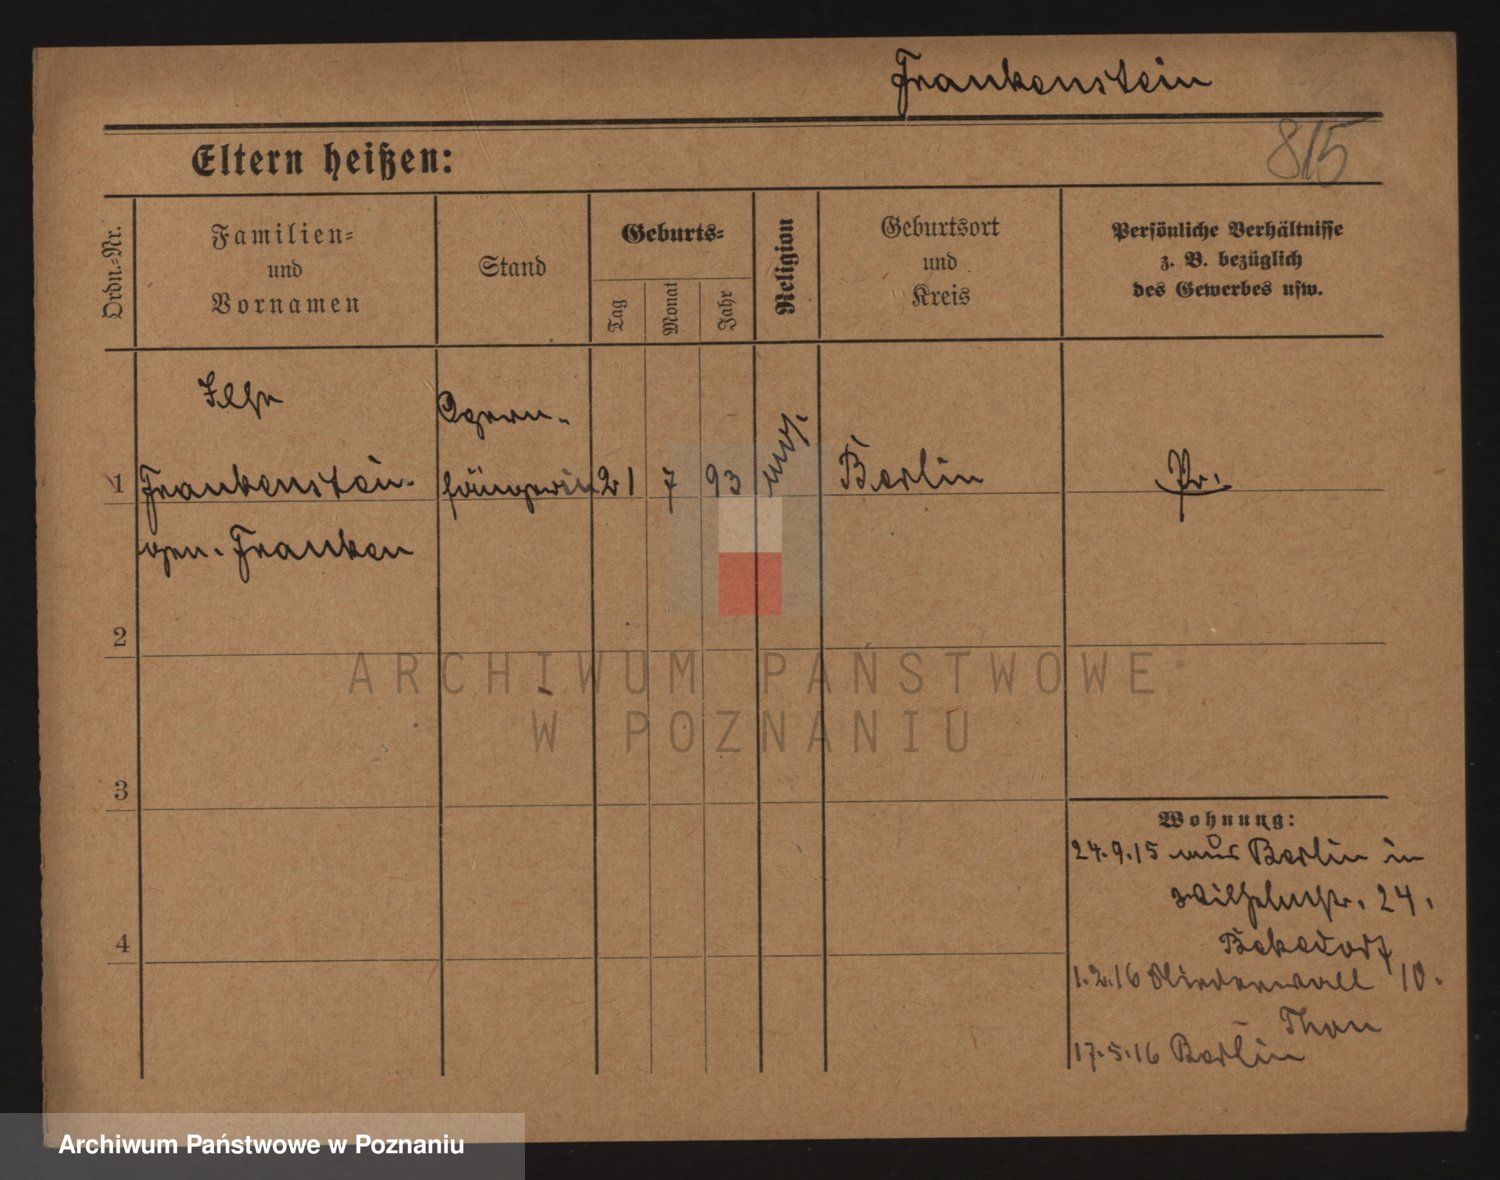 Frankenstein
815
Eltern heißen:
Ordn.-Nr.
Familien-
und
Vornamen
Stand
Geburts-
Tag
Monat
Jahr
Religion
Geburtsort
und
Kreis
Persönliche Verhältnisse
z. B. bezüglich
des Gewerbes usw.
Ilse
Opern-
1 Frankenstein. sängerin 21 7 93 Berlin Pr.
gen. Franken
2
3
4
Wohnung:
24.9.15 aus Berlin in
Wilhelmstr. 24.
1.2.16 Niederwall 10.
17.5.16 Berlin
ARCHIWUM PAŃSTWOWE
W POZNANIU
Archiwum Państwowe w Poznaniu